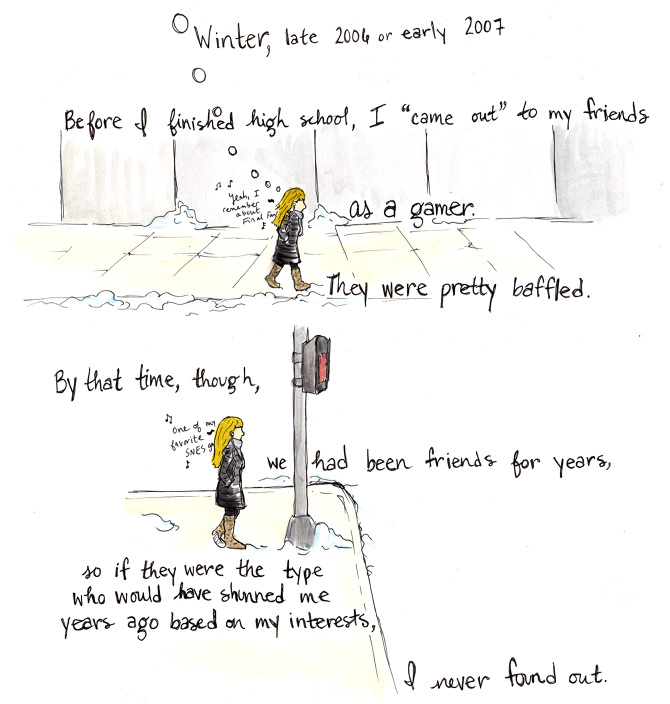 Winter, late 2006 or early 2007
Before I finished high school, I "came out" to my friends
Yeah, I
remember
about
Final Fan
as a gamer.
They were pretty baffled.
By that time, though,
One of my
favorite
SNES g
we had been friends for years,
so if they were the type
who would have shunned me
years ago based on my interests,
I never found out.